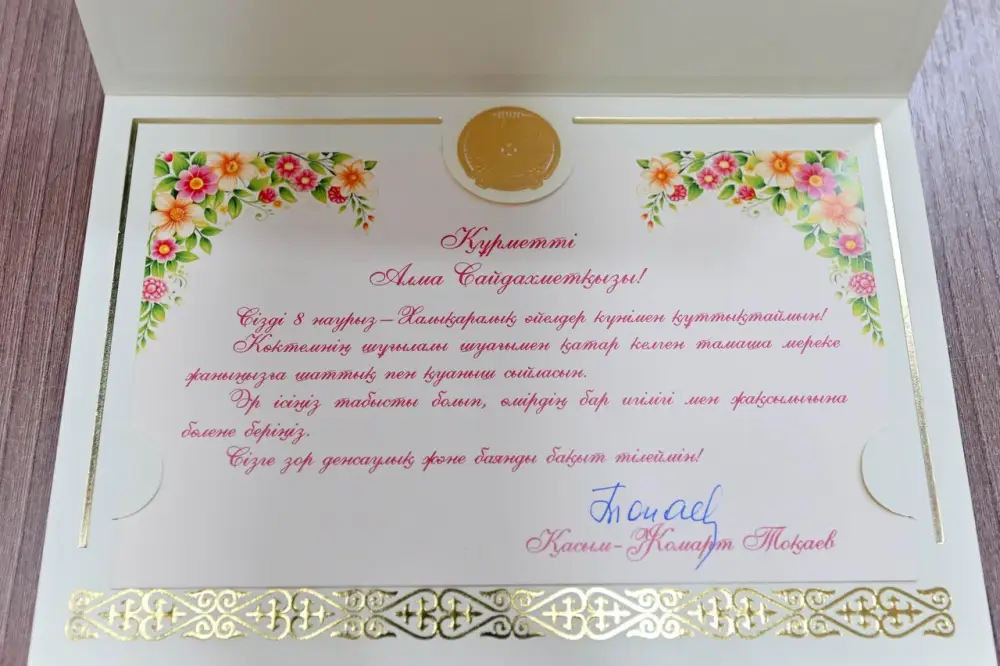 Құрметті
Алма Сайдахметқызы!
Сізді 8 наурыз – Халықаралық әйелдер күнімен құттықтаймын!
Көктемнің шуғылалы шуағымен қатар келген тамаша мереке
жаныңызға шаттық пен қуаныш сыйласын.
Әр ісіңіз табысты болып, өмірдің бар игілігі мен жақсылығына
бөлене беріңіз.
Сізге зор денсаулық және баянды бақыт тілеймін!
Тоқаев
Қасым-Жомарт Тоқаев